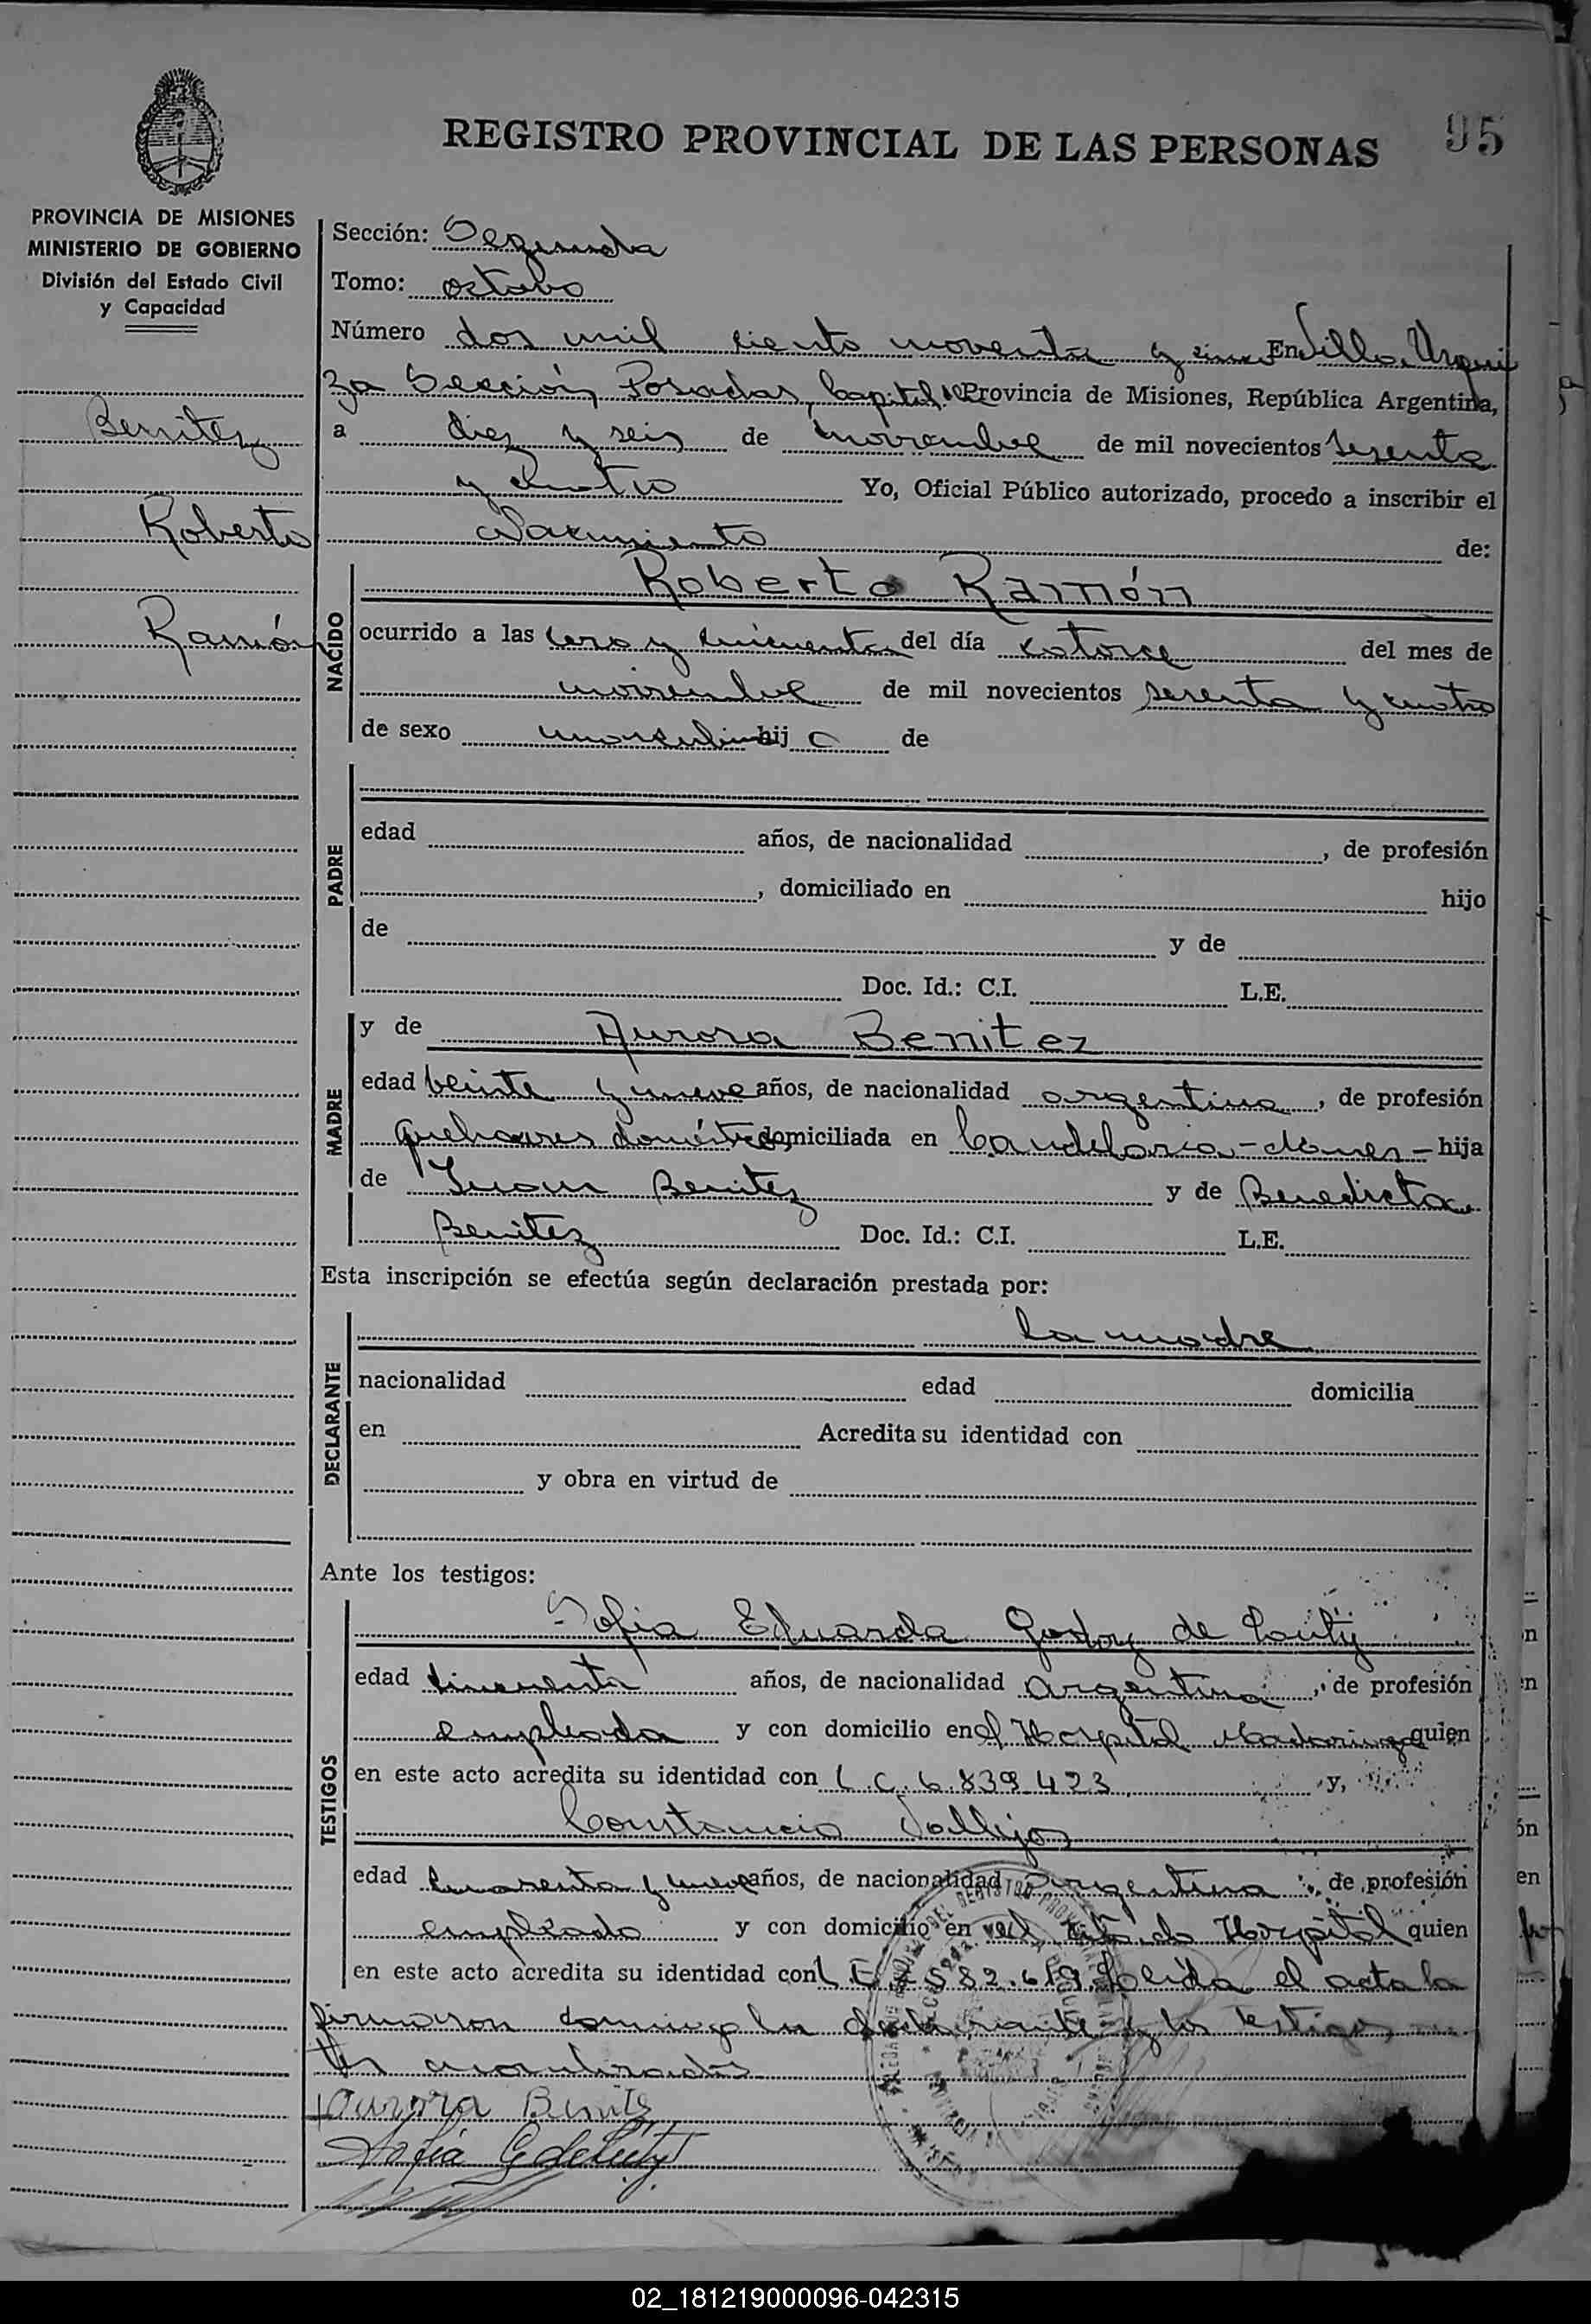 REGISTRO PROVINCIAL DE LAS PERSONAS
95
PROVINCIA DE MISIONES
MINISTERIO DE GOBIERNO
División del Estado Civil
y Capacidad
Benitez
Roberto
Ramón
Sección: Segunda
Tomo: octavo
Número dos mil ciento noventa y cinco En Villa Urqui
za Sección Posadas, Capital Provincia de Misiones, República Argentina,
a diez y seis de noviembre de mil novecientos sesenta
y cuatro Yo, Oficial Público autorizado, procedo a inscribir el
Nacimiento de:
NACIDO
Roberto Ramón
ocurrido a las cero y cincuenta del día catorce del mes de
noviembre de mil novecientos sesenta y cuatro
de sexo masculino hij o de
PADRE
edad años, de nacionalidad , de profesión
, domiciliado en hijo
de y de
Doc. Id.: C.I. L.E.
MADRE
y de Aurora Benitez
edad veinte y nueve años, de nacionalidad argentina, de profesión
quehaceres domésticos domiciliada en Candelaria - hija
de Juan Benitez y de Benedicta
Benitez Doc. Id.: C.I. L.E.
Esta inscripción se efectúa según declaración prestada por:
DECLARANTE
la madre
nacionalidad edad domicilia
en Acredita su identidad con
y obra en virtud de
Ante los testigos:
TESTIGOS
Sofia Eduarda Godoy de
edad cincuenta años, de nacionalidad Argentina, de profesión
empleada y con domicilio en el Hospital Madariaga quien
en este acto acredita su identidad con L.C. 6.839.423 y,
Constancio Vallejos
edad cuarenta y nueve años, de nacionalidad Argentina, de profesión
empleado y con domicilio en el citado Hospital quien
en este acto acredita su identidad con L.E. 582.619 Leida el acta la
firmaron conmigo la declarante y los testigos
Aurora Benitez
Sofia G de
02_181219000096-042315